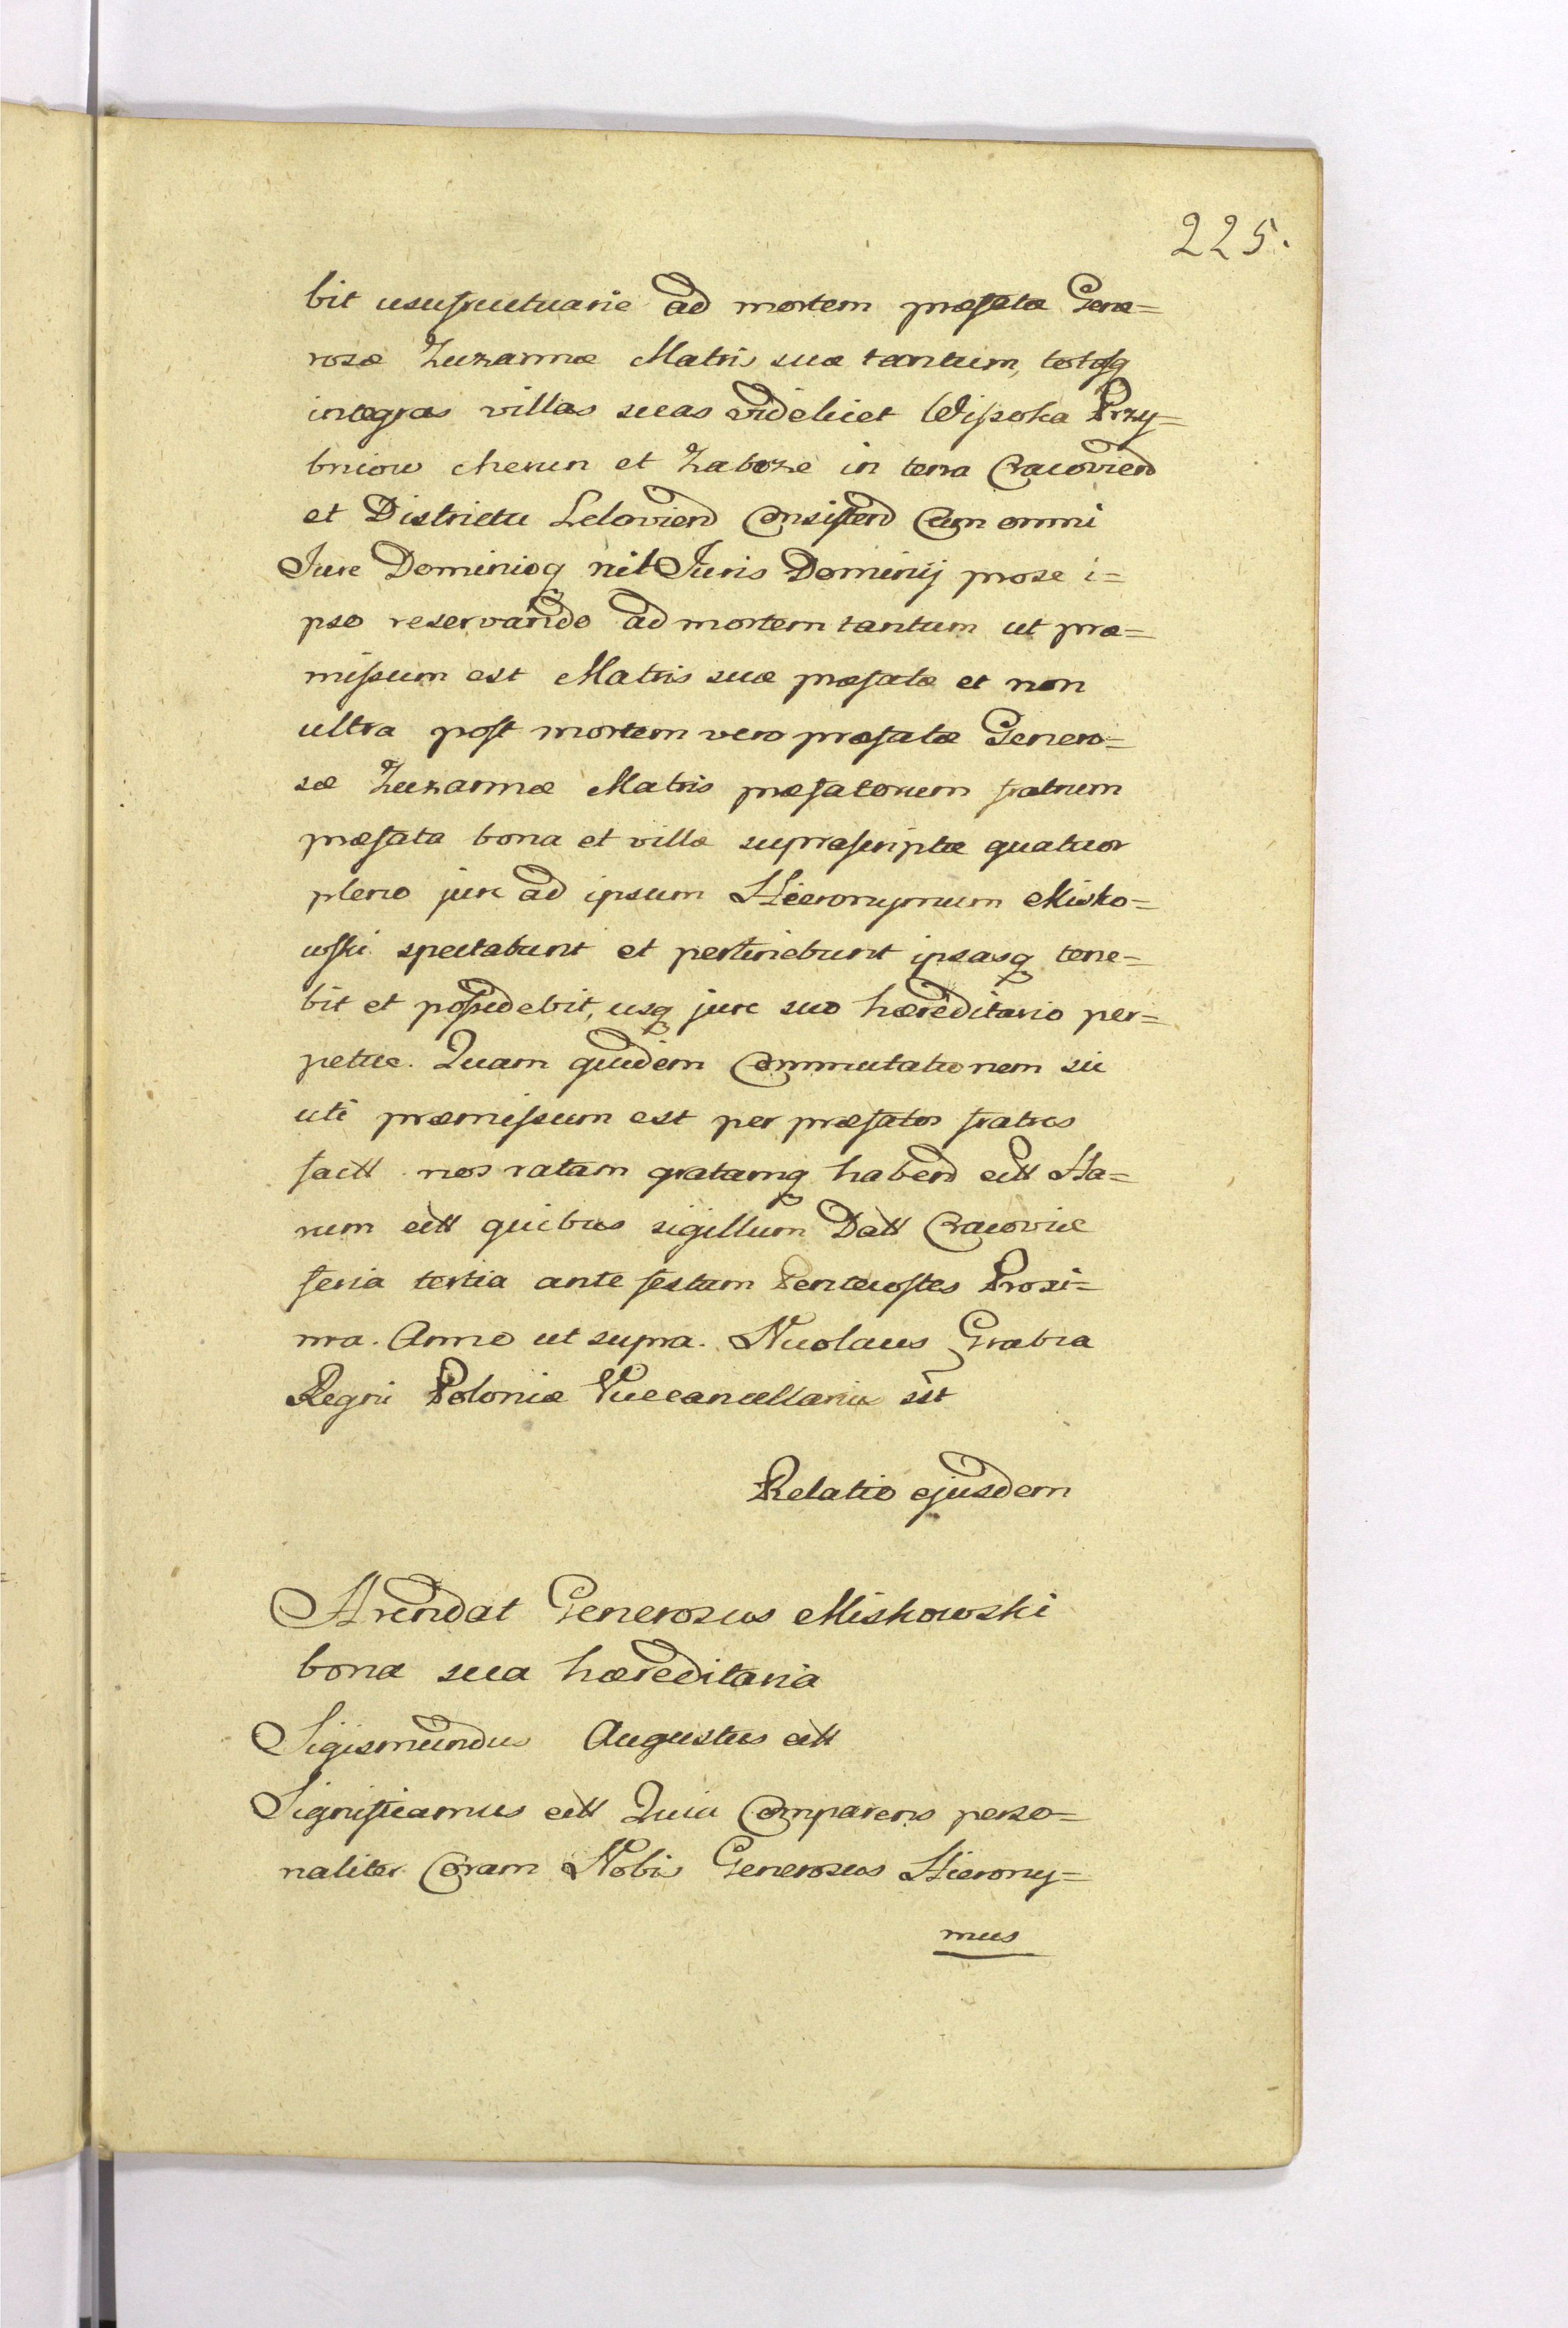 225.
bit usufructuarie ad mortem præfatæ Gene=
rosæ Zuzannæ Matris suæ tantum, totasq
integras villas suas videlicet Wissoka Przy=
bniow cherun et Zaborze in terra Cracoviend
et Districtu Leloviend Consistend Cum omni
Jure Dominioq nil Juris Dominij pro se i=
pso reservando ad mortem tantum ut præ=
missum est Matris suæ præfatæ et non
ultra post mortem vero præfatæ Genero=
sæ Zuzannæ Matris præfatorum fratrum
præfata bona et villæ suprascriptæ quatuor
pleno jure ad ipsum Hieronymum Misko=
wski spectabunt et pertinebunt ipsasq tene=
bit et possidebit, usq jure suo hæreditario per=
petue. Quam quidem Commutationem sic
uti præmissum est per præfatos fratres
factt nos ratam gratamq habend ett Ha=
rum ett quibus sigillum Datt Cracoviæ
feria tertia ante festum Pentecostes Proxi=
ma. Anno ut supra. Nicolaus Grabia
Regni Poloniæ Vicecancellarius sst
Relatio ejusdem
Arendat Generosus Miskowski
bona sua hæreditaria
Sigismundus Augustus ett
Significamus ett Quia Comparens perso=
naliter Coram Nobis Generosus Hierony=
mus